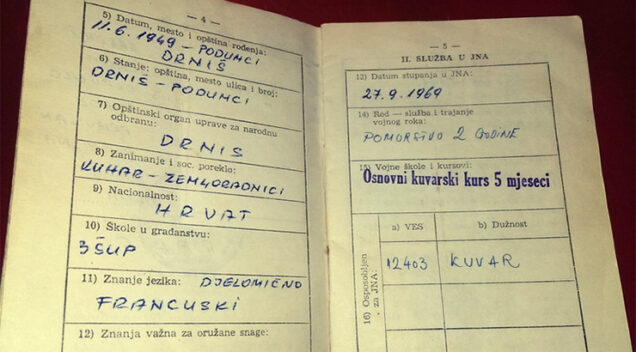 — 4 —
5) Datum, mesto i opština rođenja:
11.6.1949 - PODUMCI
DRNIŠ
6) Stanje: opština, mesto ulica i broj:
DRNIŠ - PODUMCI
7) Opštinski organ uprave za narodnu
odbranu:
DRNIŠ
8) Zanimanje i soc. poreklo:
KUHAR - ZEMLJORADNICI
9) Nacionalnost:
HRVAT
10) Škole u građanstvu:
3 ŠUP
11) Znanje jezika: DJELOMIČNO
FRANCUSKI
12) Znanja važna za oružane snage:
— 5 —
II. SLUŽBA U JNA
13) Datum stupanja u JNA:
27.9.1969
14) Rod — služba i trajanje
vojnog roka:
POMORSTVO 2 GODINE
15) Vojne škole i kursovi:
Osnovni kuvarski kurs 5 mjeseci
16) Osposobljen
za JNA:
a) VES
b) Dužnost
12403 KUVAR